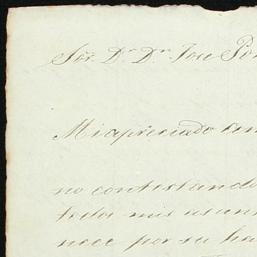 Sor. Dr. Dn. Jose
Mi apreciado
no contestando
todos mis asun
nece por su ha